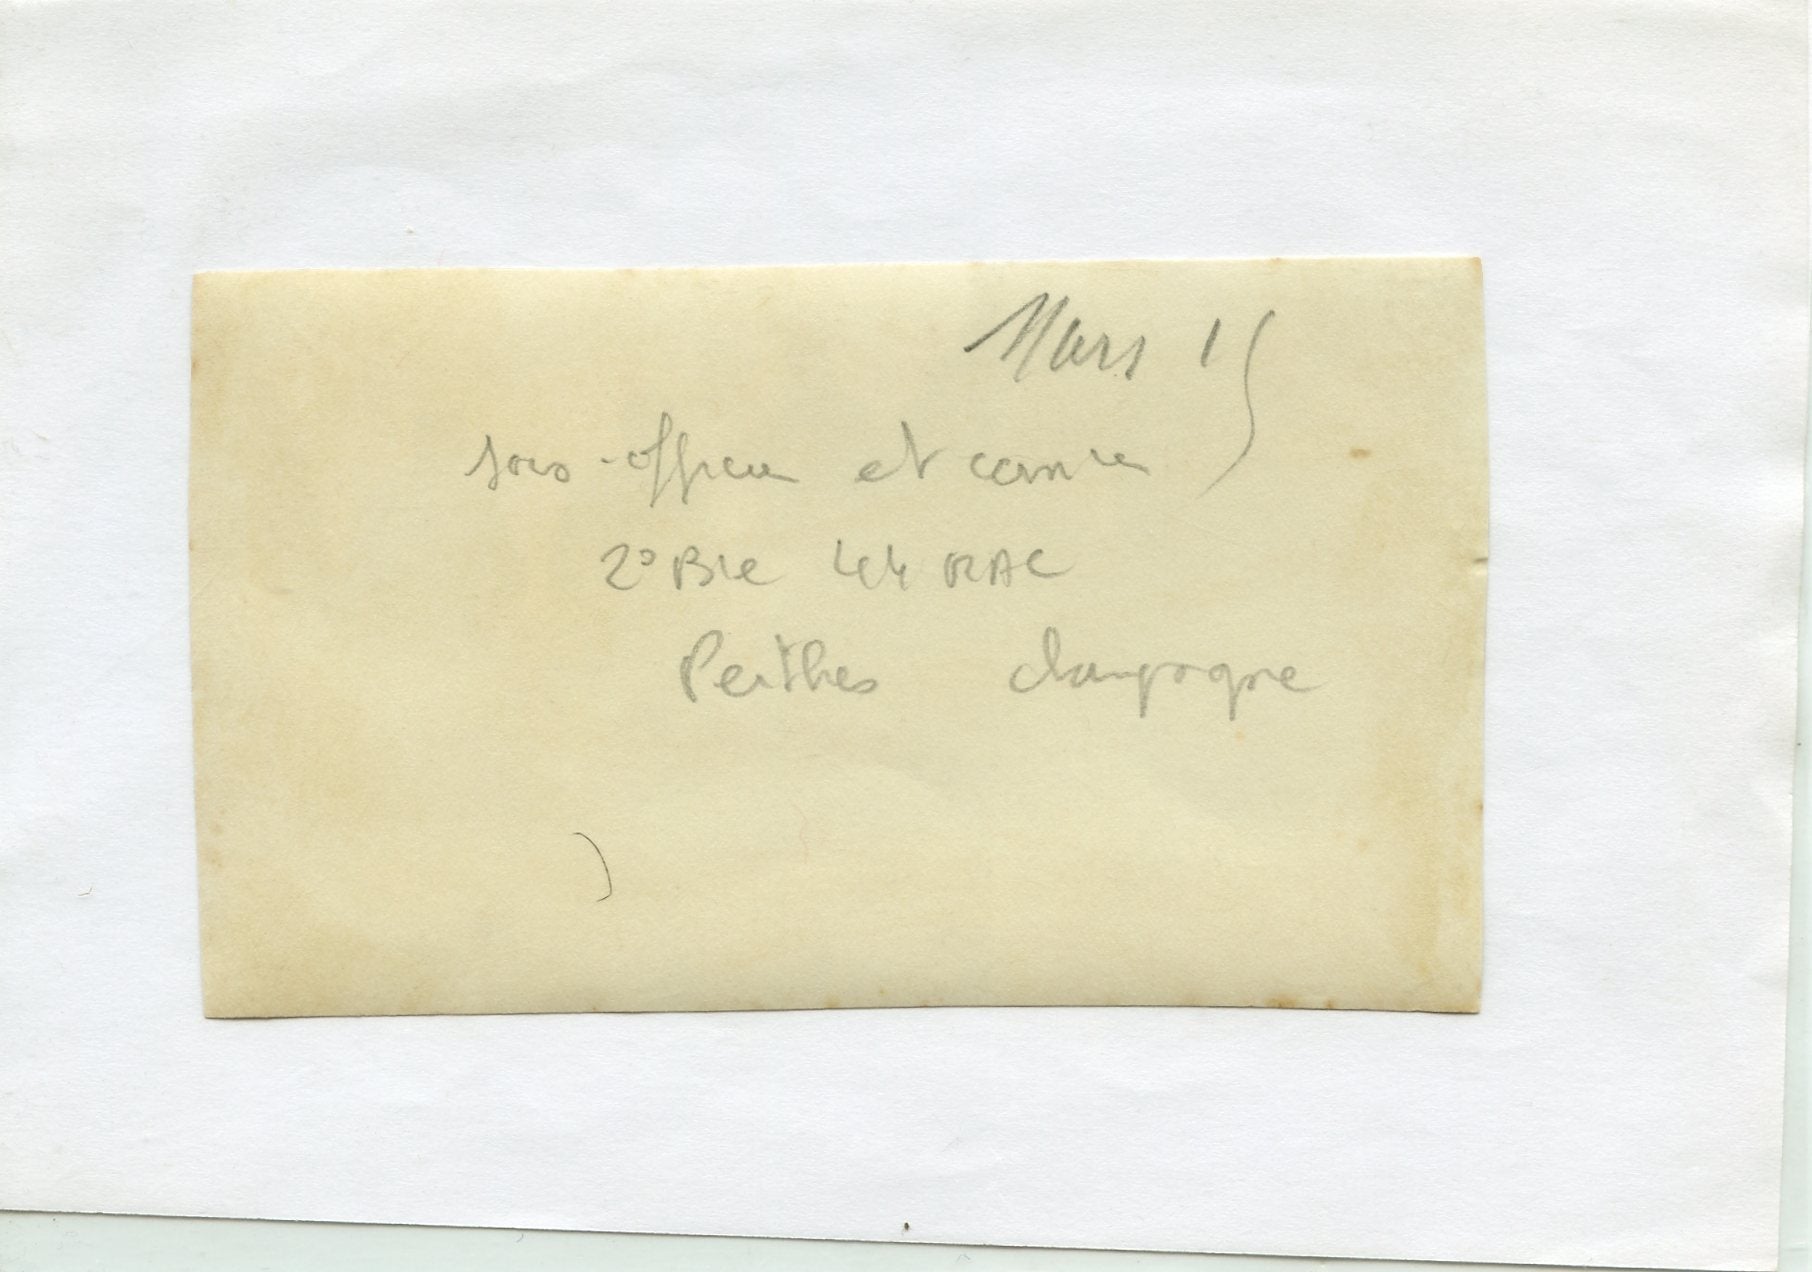 Mars 15
sous-officier et
2° Bie 44 RAC
Perthes champagne